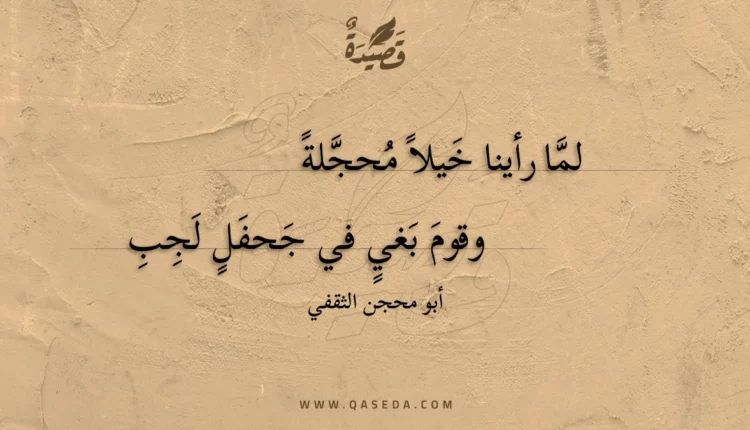 قَصِيدَةٌ
لمَّا رأينا خَيلاً مُحجَّلةً
وقومَ بَغيٍ في جَحفَلٍ لَجِبِ
أبو محجن الثقفي
WWW.QASEDA.COM